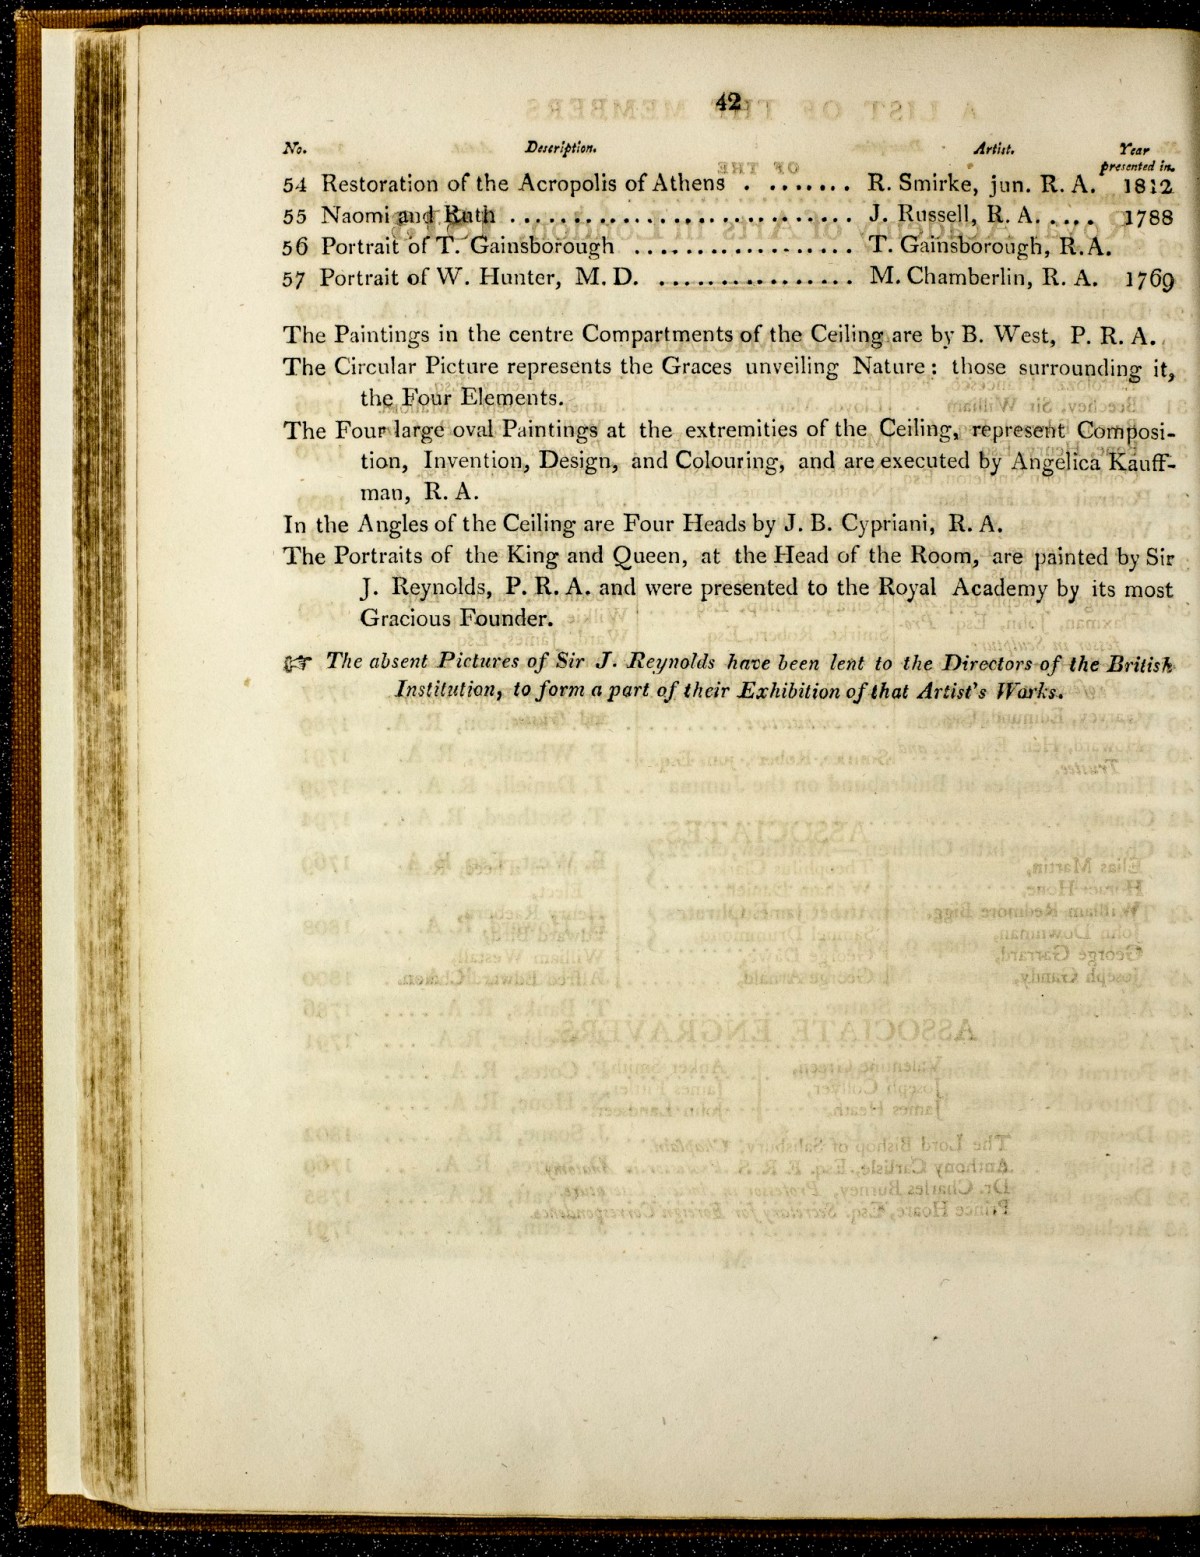 42
No. Description. Artist. Year
presented in.
54 Restoration of the Acropolis of Athens . ....... R. Smirke, jun. R. A. 1812
55 Naomi and Ruth ................................ J. Russell, R. A. ..... 1788
56 Portrait of T. Gainsborough .................... T. Gainsborough, R. A.
57 Portrait of W. Hunter, M. D. .................. M. Chamberlin, R. A. 1769
The Paintings in the centre Compartments of the Ceiling are by B. West, P. R. A.
The Circular Picture represents the Graces unveiling Nature: those surrounding it,
the Four Elements.
The Four large oval Paintings at the extremities of the Ceiling, represent Composi-
tion, Invention, Design, and Colouring, and are executed by Angelica Kauff-
man, R. A.
In the Angles of the Ceiling are Four Heads by J. B. Cypriani, R. A.
The Portraits of the King and Queen, at the Head of the Room, are painted by Sir
J. Reynolds, P. R. A. and were presented to the Royal Academy by its most
Gracious Founder.
☞ The absent Pictures of Sir J. Reynolds have been lent to the Directors of the British
Institution, to form a part of their Exhibition of that Artist's Works.